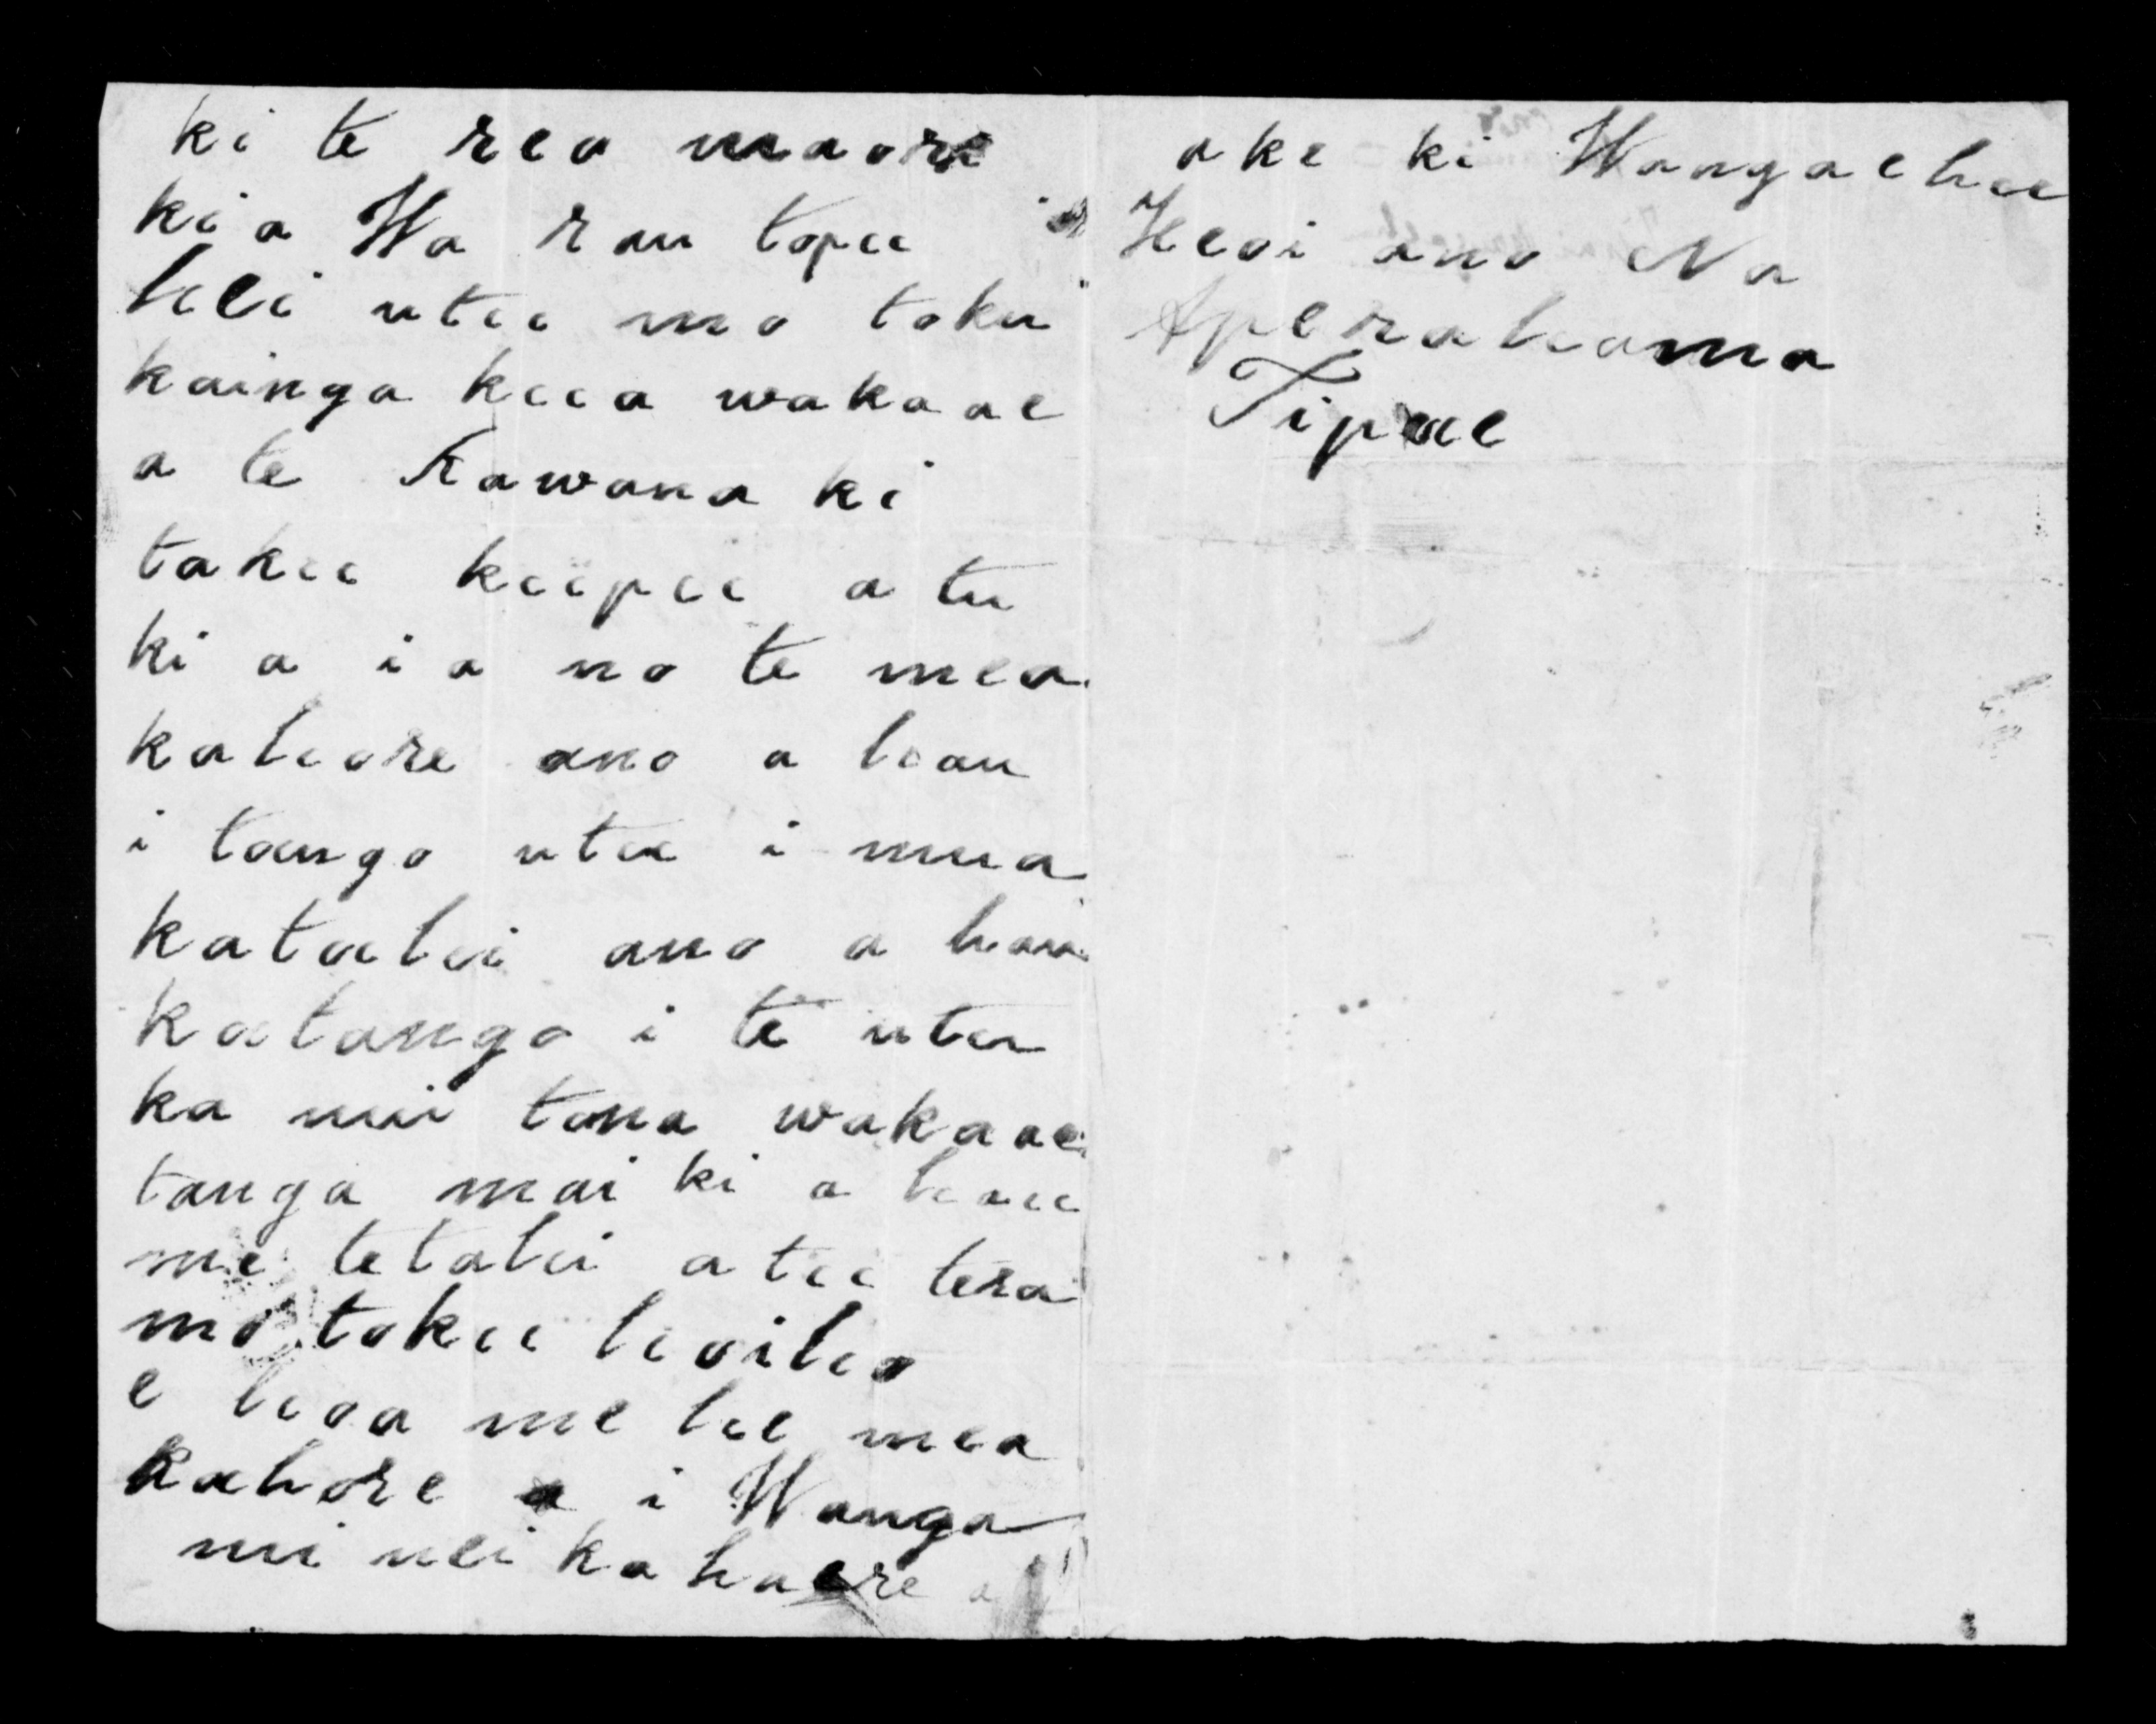 ki te reo maori
kia Wa rau topu
hei utu mo toku
kainga kua wakaae
a te Kawana ki
taku kupu a tu
ki a i a no te mea
kahore ano a hau
i tango utu i mua
katahi ano a hau
katango i te utu
ka nui tona wakaae
tanga mai ki a hau
me tetahi atu tera
mo taku hoiho
e hoa me he mea
Kahore i Wanga
nui nei ka haere a
ake ki Wangaehu
Heoi ano Na
Aperahama
Tipae